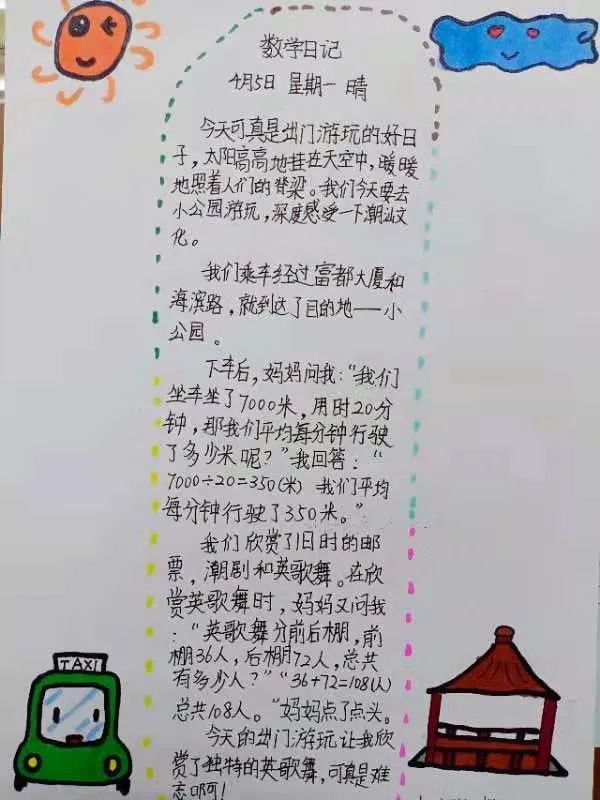 数学日记
4月5日 星期一 晴
今天可真是出门游玩的好日
子，太阳高高地挂在天空中，暖暖
地照着人们的脊梁。我们今天要去
小公园游玩，深度感受一下潮汕文
化。
我们乘车经过富都大厦和
海滨路，就到达了目的地——小
公园。
下车后，妈妈问我：“我们
坐车坐了7000米，用时20分
钟，那我们平均每分钟行驶
了多少米呢？”我回答：“
7000÷20=350(米) 我们平均
每分钟行驶了350米。”
我们欣赏了旧时的邮
票，潮剧和英歌舞。在欣
赏英歌舞时，妈妈又问我
：“英歌舞分前后棚，前
棚36人，后棚72人，总共
有多少人？”“36+72=108(人)
总共108人。”妈妈点了点头。
今天的出门游玩让我欣
赏了独特的英歌舞，可真是难
忘啊！
TAXI